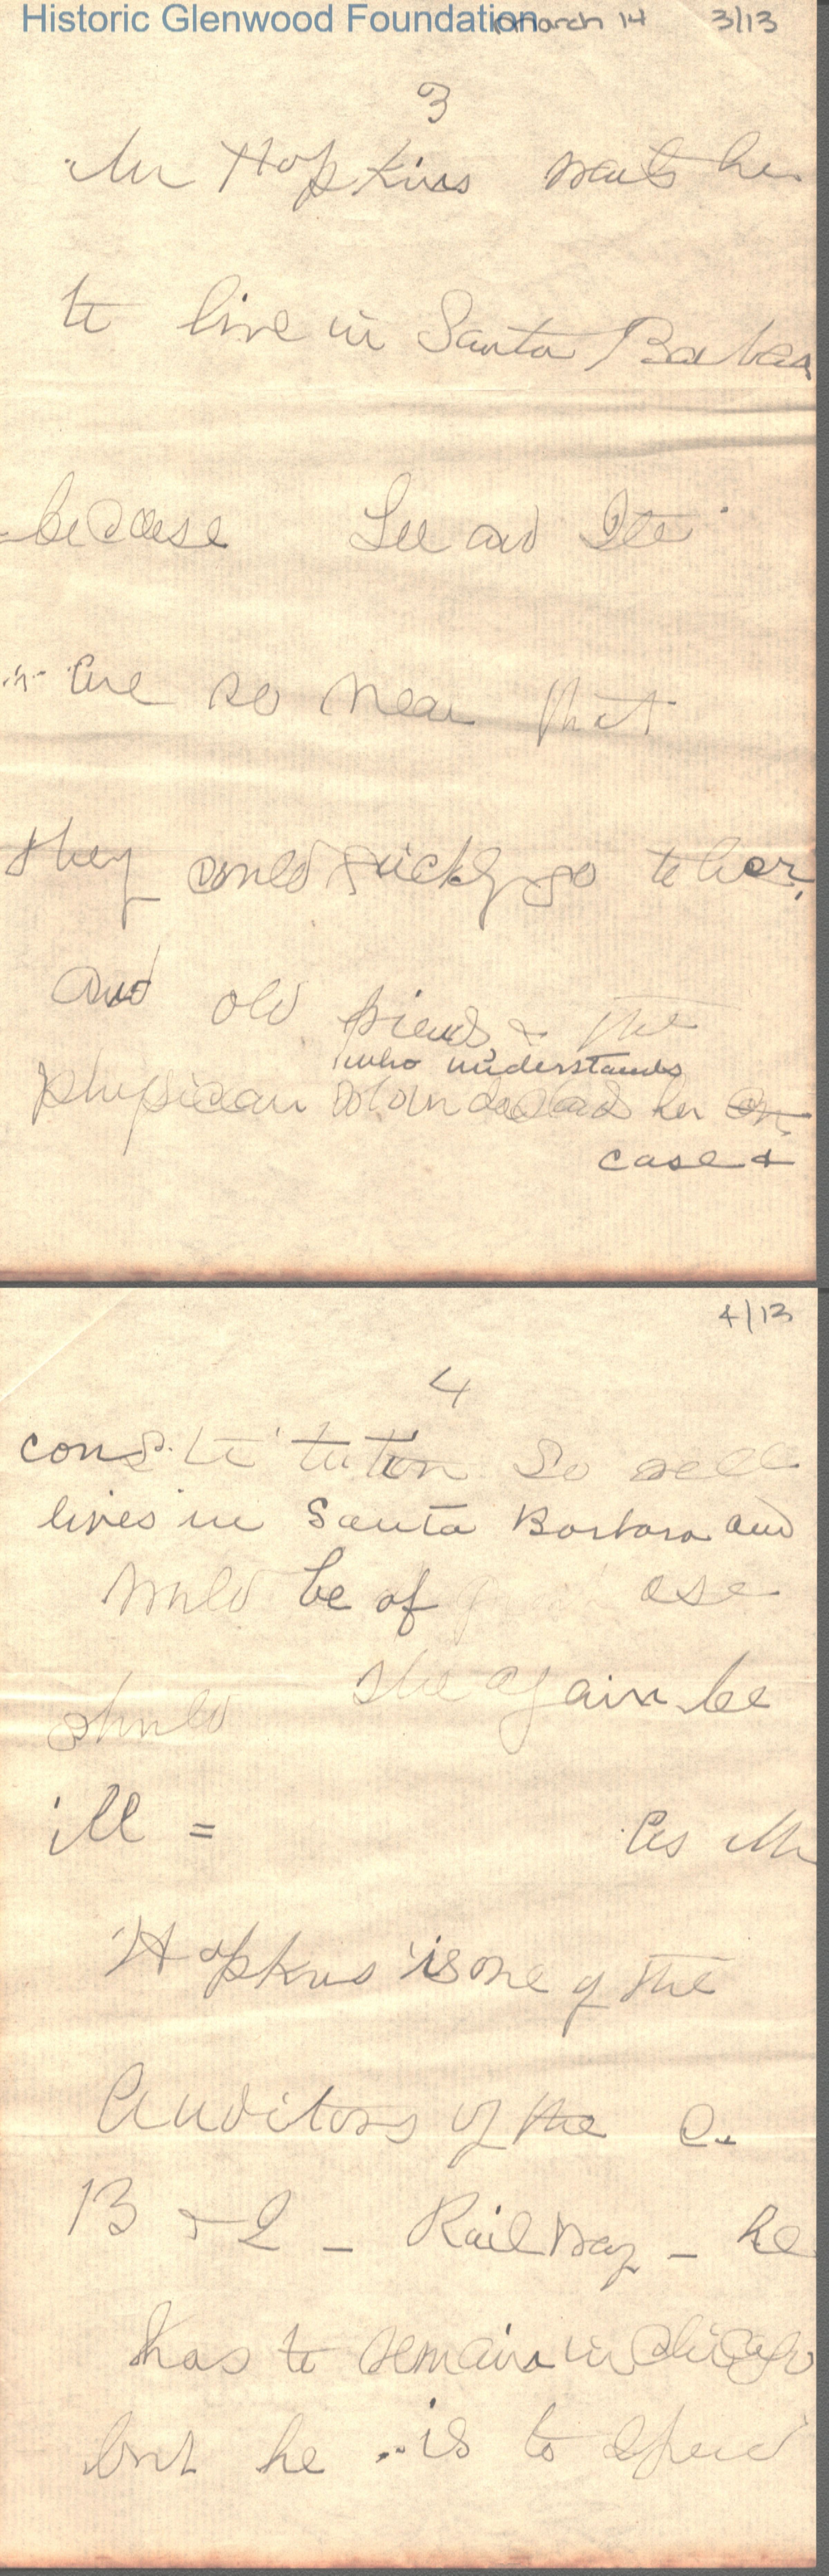 Historic Glenwood Foundation March 14 3/13
3
Mr Hopkins wants her
to live in Santa Barbara
because Lee and
are so near that
they could quickly go to her,
and old friends, & the
who understands
physician her
case &
4/13
4
constitution so well
lives in Santa Barbara and
would be of use
should she again be
ill = As Mr
Hopkins is one of the
Auditors of the C.
B & Q - Railway - he
has to remain in Chicago
but he is to spend